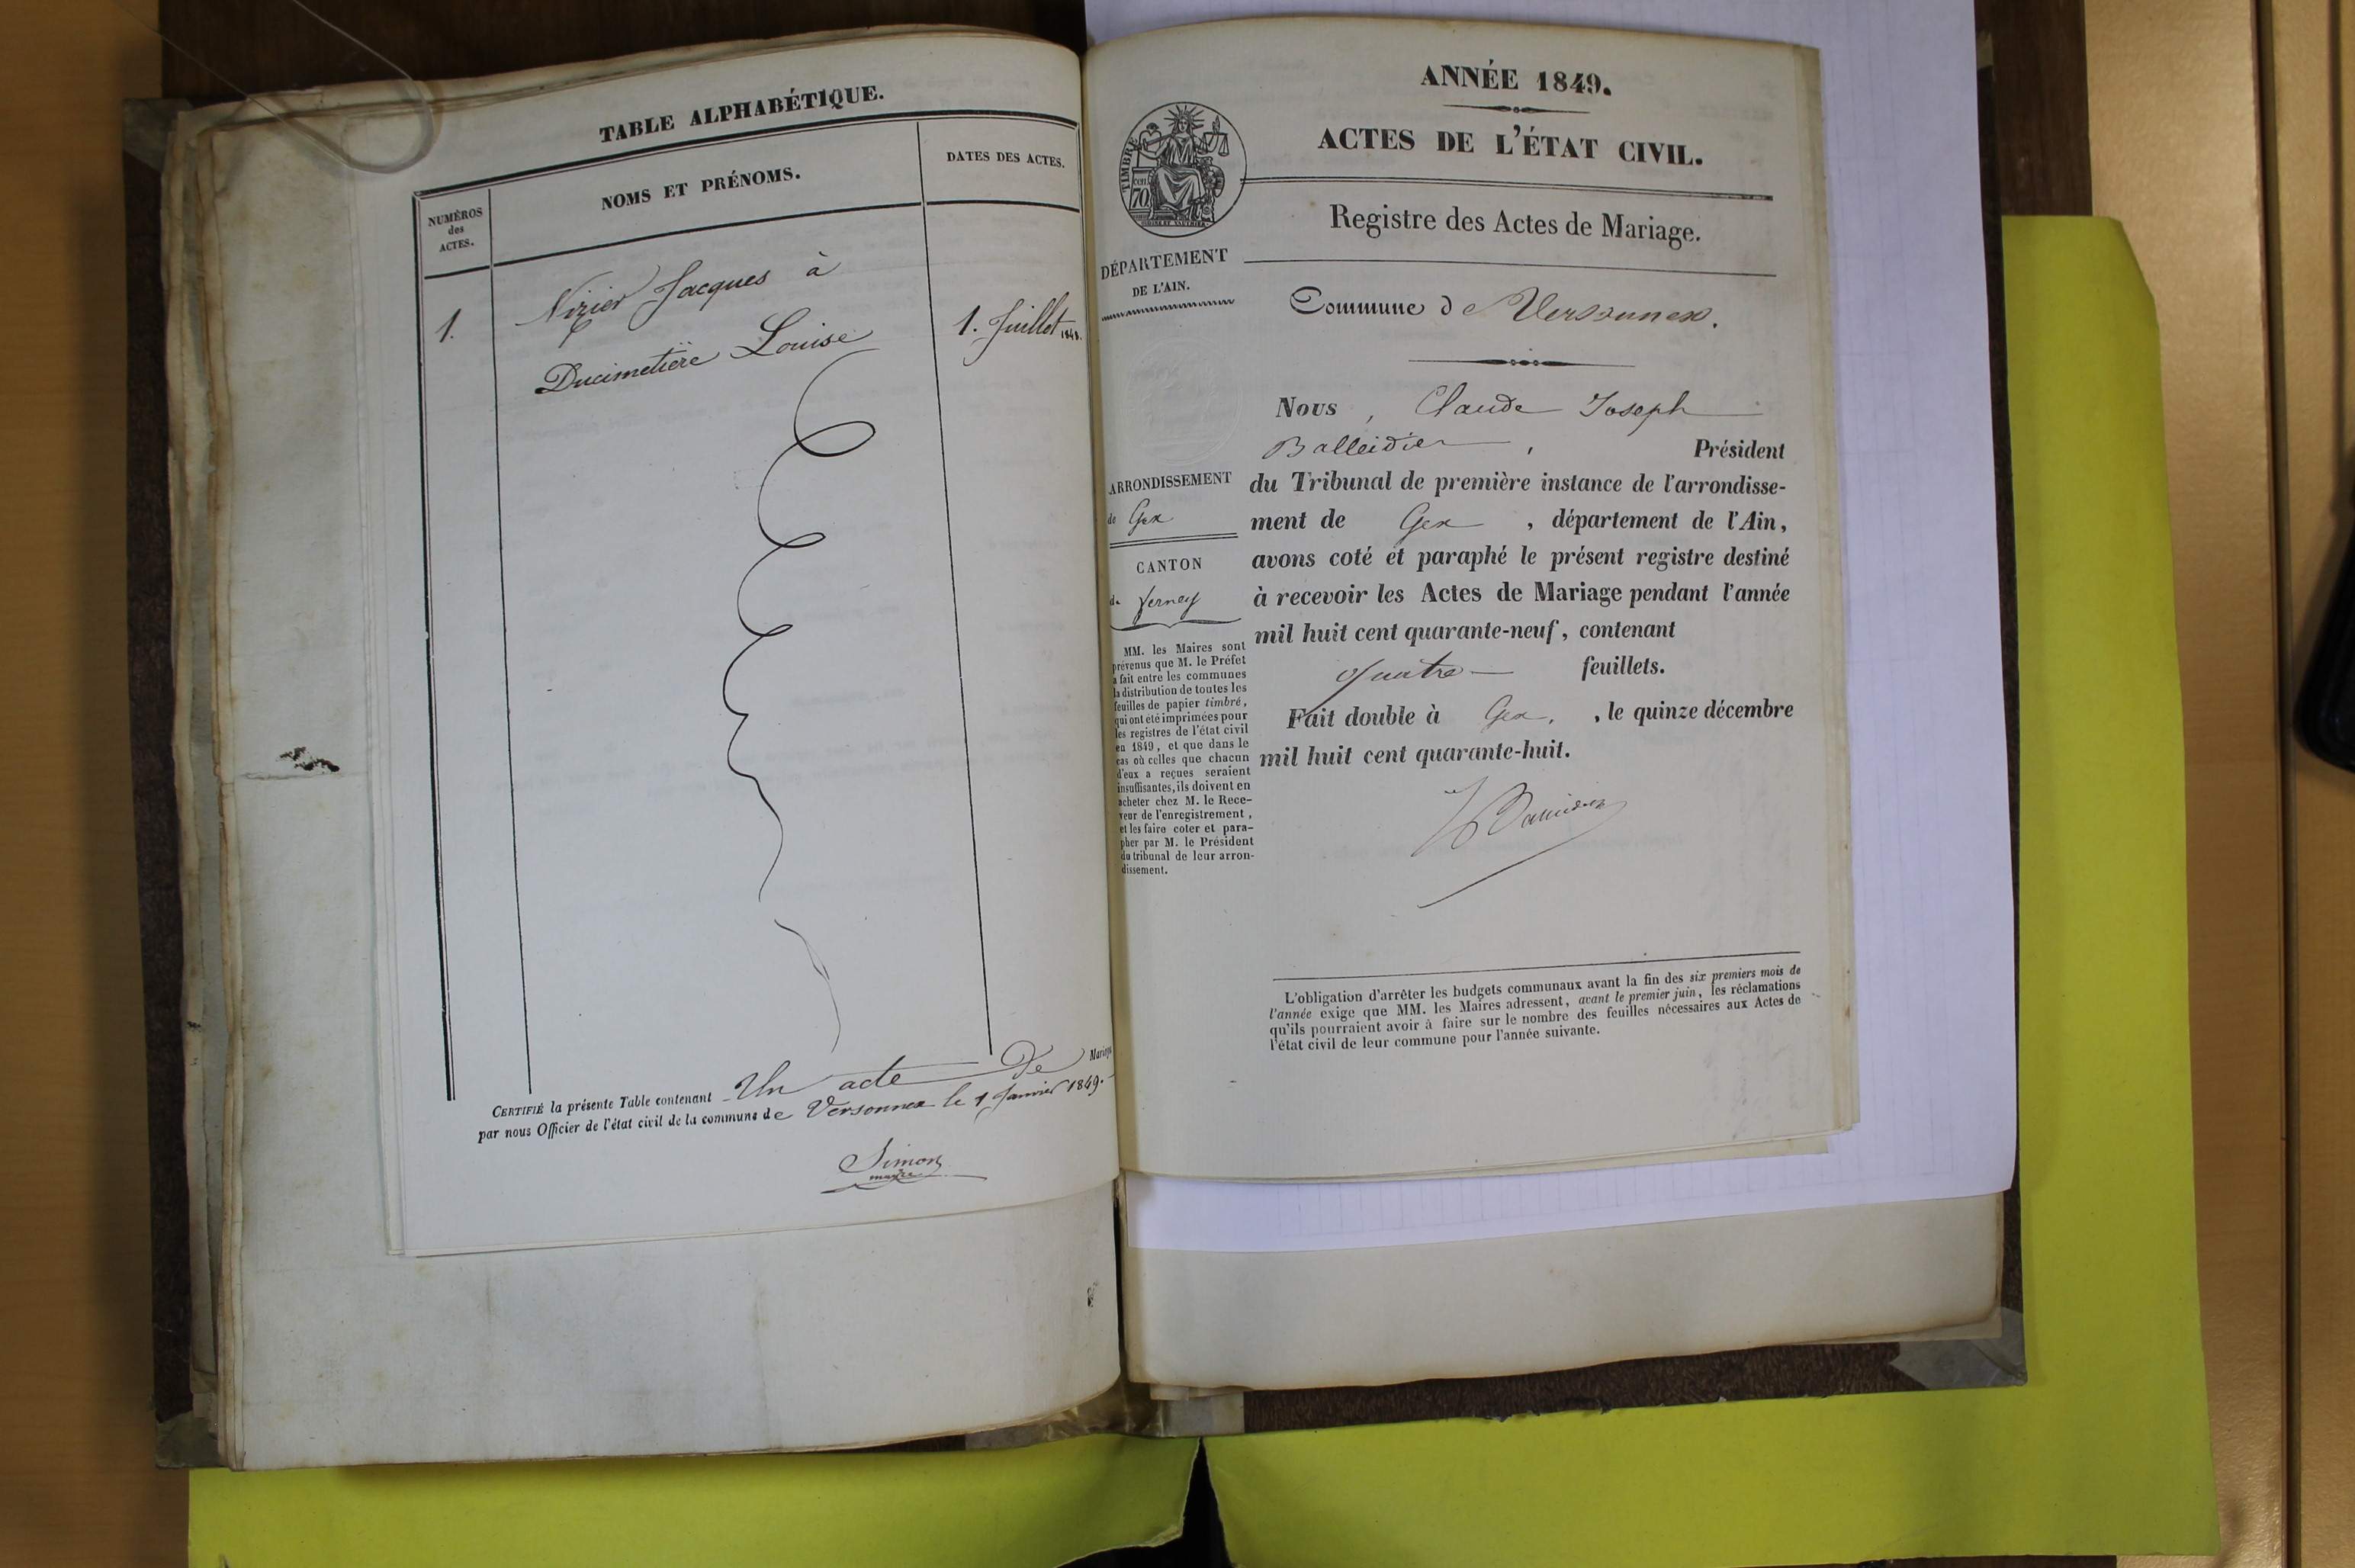 TABLE ALPHABÉTIQUE.
NUMÉROS
des
ACTES.
NOMS ET PRÉNOMS.
DATES DES ACTES.
1.
Nizier Jacques à
Ducimetière Louise
1. Juillet 1848.
CERTIFIÉ la présente Table contenant Un acte De Mariage
par nous Officier de l'état civil de la commune de Versonnex le 1 Janvier 1849.
Simon
maire
ANNÉE 1849.
ACTES DE L'ÉTAT CIVIL.
TIMBRE
cen
70
Registre des Actes de Mariage.
DÉPARTEMENT
DE L'AIN.
Commune de Versonnex.
Nous, Claude Joseph
Balleidier, Président
du Tribunal de première instance de l'arrondisse-
ment de Gex, département de l'Ain,
avons coté et paraphé le présent registre destiné
à recevoir les Actes de Mariage pendant l'année
mil huit cent quarante-neuf, contenant
quatre feuillets.
Fait double à Gex, le quinze décembre
mil huit cent quarante-huit.
ARRONDISSEMENT
de Gex
CANTON
de ferney
MM. les Maires sont
prévenus que M. le Préfet
a fait entre les communes
la distribution de toutes les
feuilles de papier timbré,
qui ont été imprimées pour
les registres de l'état civil
en 1849, et que dans le
cas où celles que chacun
d'eux a reçues seraient
insuffisantes, ils doivent en
acheter chez M. le Rece-
veur de l'enregistrement,
et les faire coter et para-
pher par M. le Président
du tribunal de leur arron-
dissement.
L'obligation d'arrêter les budgets communaux avant la fin des six premiers mois de
l'année exige que MM. les Maires adressent, avant le premier juin, les réclamations
qu'ils pourraient avoir à faire sur le nombre des feuilles nécessaires aux Actes de
l'état civil de leur commune pour l'année suivante.